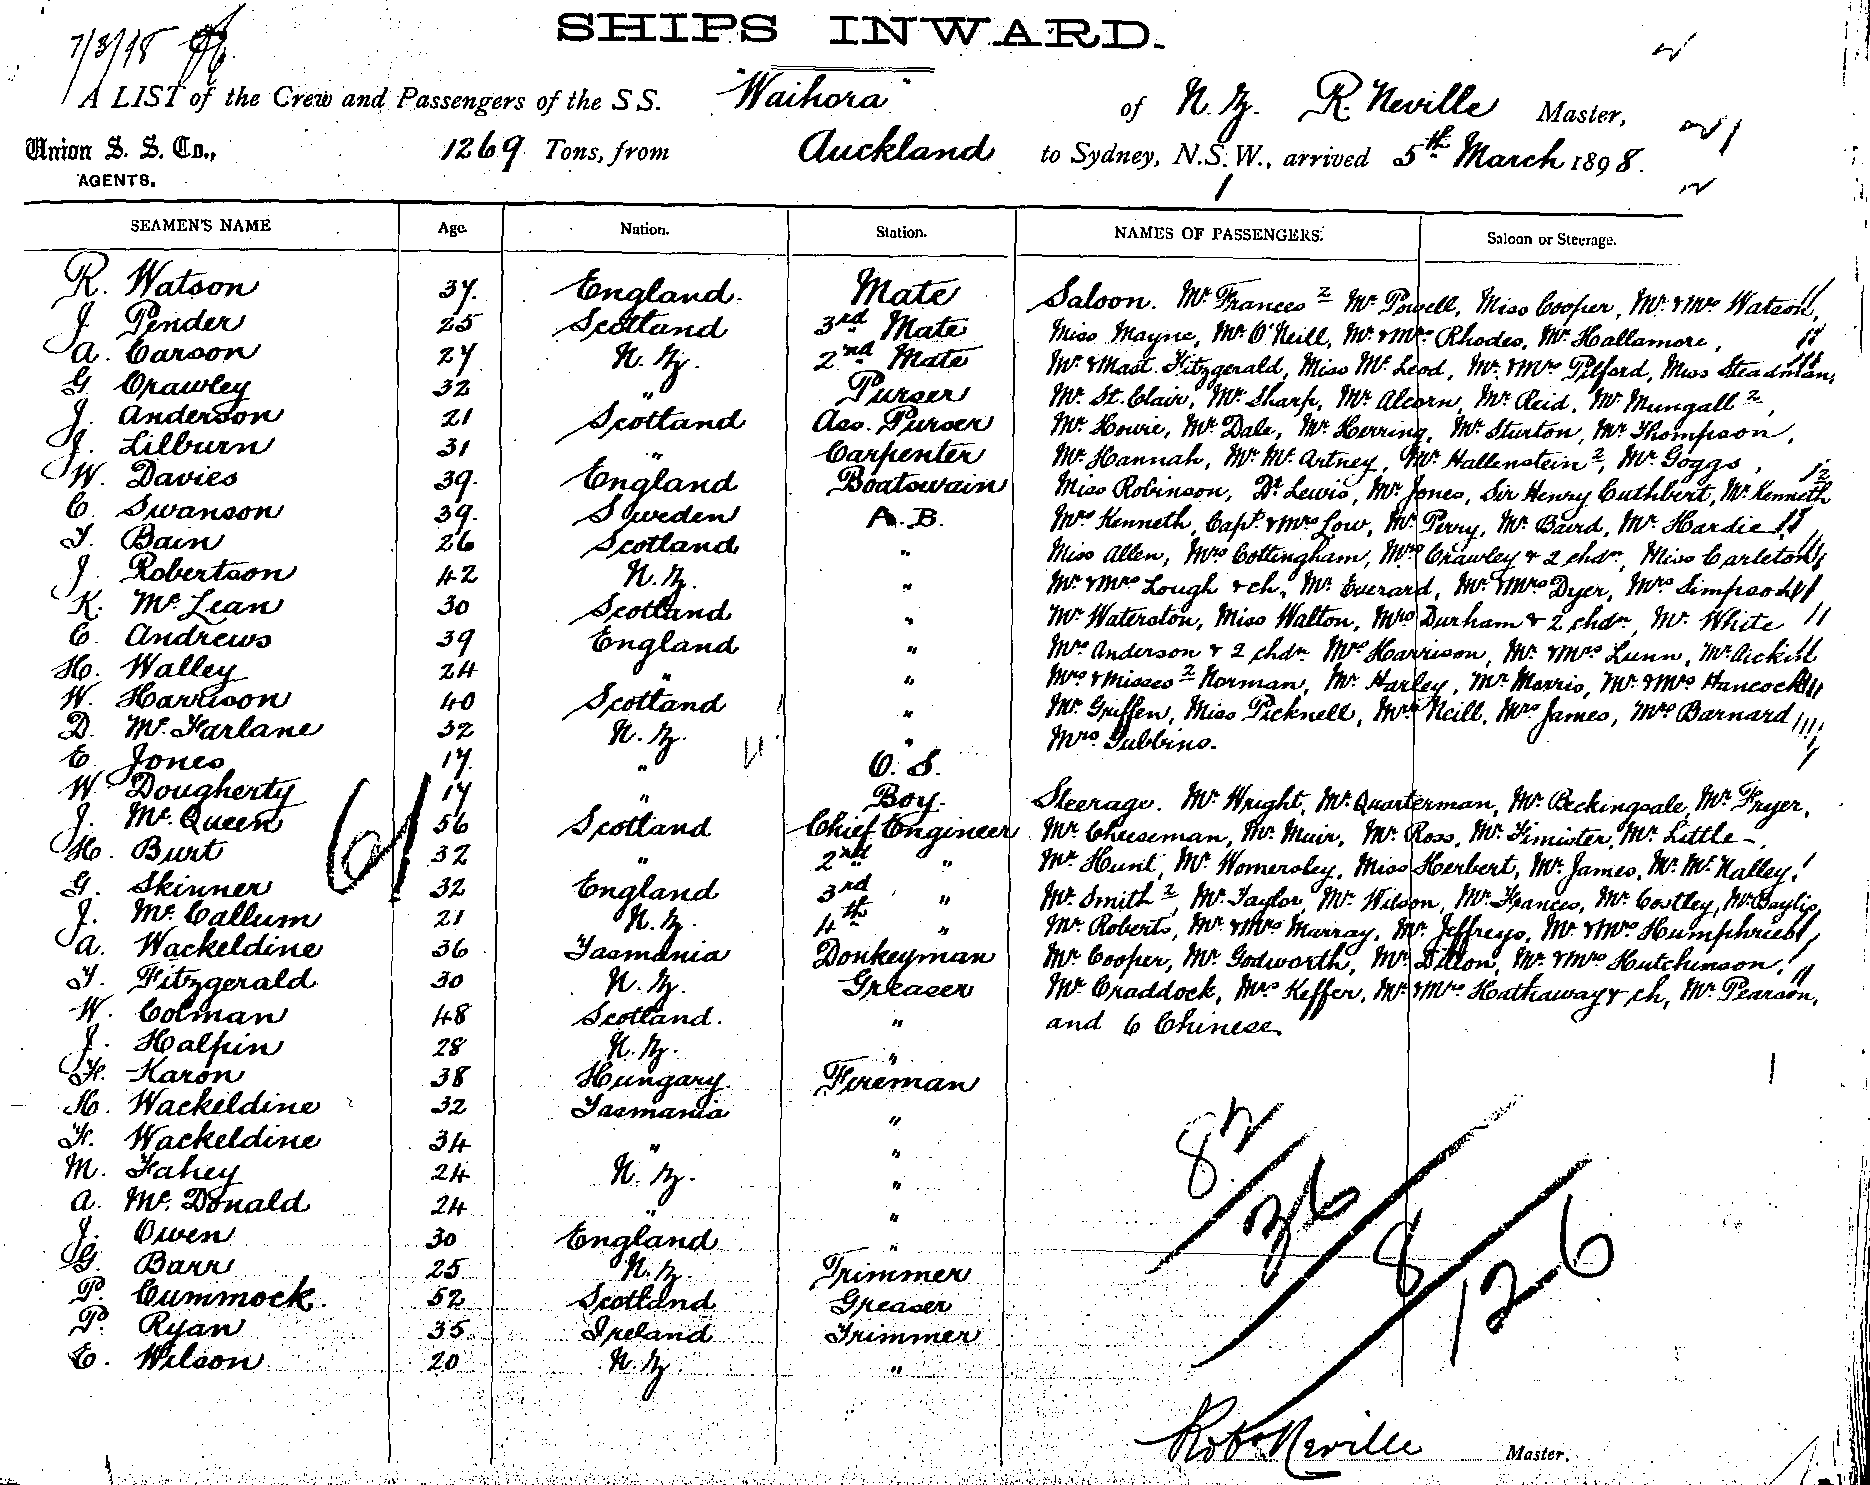 7/3/98
SHIPS INWARD.
A LIST of the Crew and Passengers of the SS. "Waihora" of N. Z. R. Neville Master,
Union S. S. Co., 1269 Tons, from Auckland to Sydney, N.S.W., arrived 5th March 1898.
AGENTS.
SEAMEN'S NAME Age. Nation. Station. NAMES OF PASSENGERS. Saloon or Steerage.
R. Watson 37. England. Mate
J. Pender 25 Scotland 3rd Mate
A. Carson 27 N. Z. 2nd Mate
G. Crawley 32 " Purser
J. Anderson 21 Scotland Ass. Purser
J. Lilburn 31 " Carpenter
W. Davies 39. England Boatswain
C. Swanson 39. Sweden A. B.
T. Bain 26 Scotland "
J. Robertson 42 N. Z. "
K. Mc Lean 30 Scotland "
C. Andrews 39 England "
H. Walley 24 " "
W. Harrison 40 Scotland "
D. Mc Farlane 32 N. Z. "
E. Jones 17. " O. S.
W. Dougherty 17 " Boy.
J. Mc Queen 56 Scotland Chief Engineer
H. Burt 32 " 2nd "
G. Skinner 32 England 3rd "
J. Mc Callum 21 N. Z. 4th "
A. Wackeldine 36 Tasmania Donkeyman
T. Fitzgerald 30 N. Z. Greaser
W. Colman 48 Scotland. "
J. Halpin 28 N. Z. "
F. Karon 38 Hungary Fireman
H. Wackeldine 32 Tasmania "
F. Wackeldine 34 " "
M. Fahey 24 N. Z. "
A. Mc Donald 24 " "
J. Owen 30 England "
G. Barr 25 N. Z. Trimmer
P. Cummock. 52 Scotland Greaser
P. Ryan 35 Ireland Trimmer
C. Wilson 20 N. Z. "
61
Saloon. Mr Frances 2 Mr Powell, Miss Cooper, Mr & Mrs Watson,
Miss Mayne, Mr O'Neill, Mr & Mrs Rhodes, Mr Hallamore,
Mr & Mast. Fitzgerald, Miss Mc Leod, Mr & Mrs Pilford, Miss Steadman,
Mr St. Clair, Mr Sharp, Mr Alcorn, Mr Reid, Mr Mungall 2,
Mr Howie, Mr Dale, Mr Herring, Mr Sturton, Mr Thompson,
Mr Hannah, Mr Mc Artney, Mr Hallenstein 2, Mr Goggs,
Miss Robinson, Dr Lewis, Mr Jones, Sir Henry Cuthbert, Mr Kenneth
Mrs Kenneth, Capt. & Mrs Low, Mr Perry, Mr Baird, Mr Hardie
Miss Allen, Mrs Cottingham, Mrs Crawley & 2 chdn, Miss Carleton
Mr & Mrs Lough & ch, Mr Everard, Mr & Mrs Dyer, Mrs Simpson
Mr Waterston, Miss Walton, Mrs Durham & 2 chdn, Mr White
Mrs Anderson & 2 chdn Mrs Harrison, Mr & Mrs Lunn, Mr Aickin
Mrs & Misses 2 Norman, Mr Harley, Mr Morris, Mr & Mrs Hancock
Mr Griffen, Miss Picknell, Mrs Neill, Mrs James, Mrs Barnard
Mrs Gubbins.
Steerage. Mr Wright, Mr Quarterman, Mr Beckingsale, Mr Fryer,
Mr Cheeseman, Mr Muir, Mr Ross, Mr Fimister, Mr Little -,
Mr Hunt, Mr Womersley, Miss Herbert, Mr James, Mr Mc Nalley,
Mr Smith 2, Mr Taylor, Mr Wilson, Mr Frances, Mr Costley, Mr Baylis,
Mr Roberts, Mr & Mrs Murray, Mr Jeffreys, Mr & Mrs Humphries,
Mr Cooper, Mr Godworth, Mr Dillon, Mr & Mrs Hutchinson,
Mr Craddock, Mrs Keffer, Mr & Mrs Hathaway & ch, Mr Pearson,
and 6 Chinese.
82
36
8
126
Robt Neville Master.